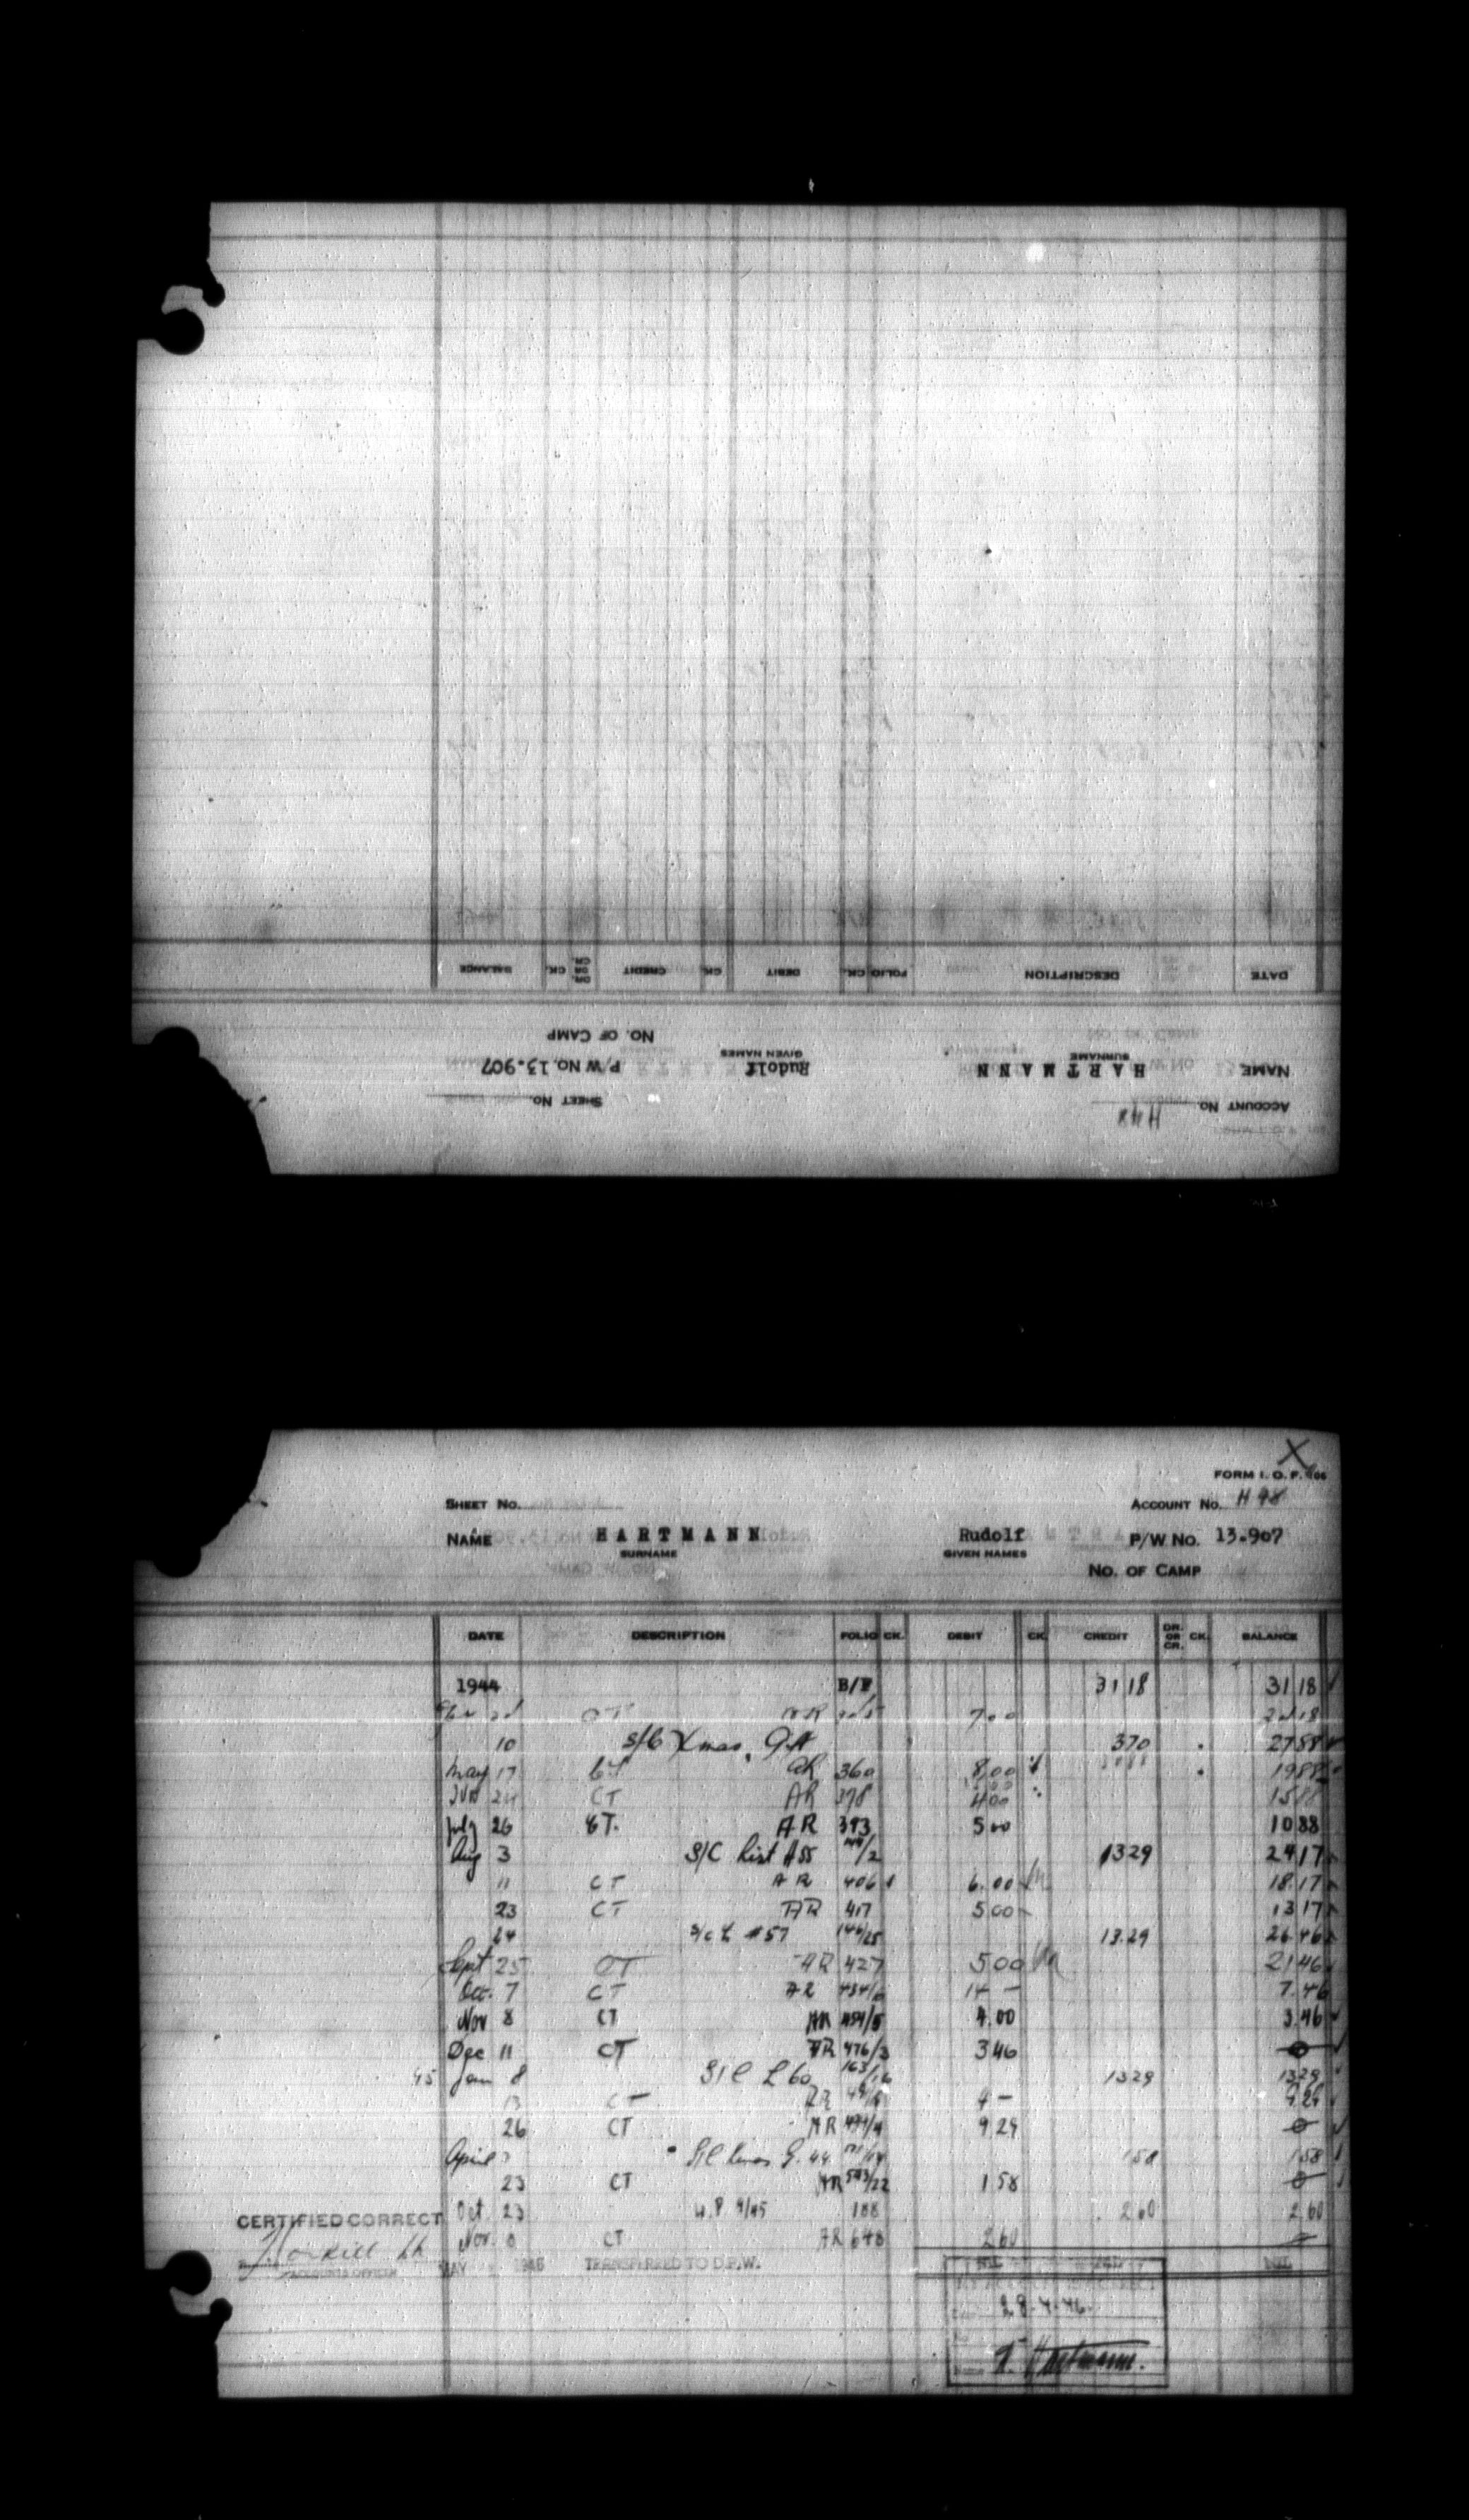 DATE DESCRIPTION FOLIO CK. DEBIT CK. CREDIT DR. OR CR. CK. BALANCE
NO. OF CAMP
NAME HARTMANN Rudolf P/W No. 13.907
SURNAME GIVEN NAMES
ACCOUNT No. H48 SHEET No.
X
FORM I. O. P. 106
SHEET No. ACCOUNT No. H 48
NAME HARTMANN Rudolf P/W No. 13.907
SURNAME GIVEN NAMES
No. OF CAMP
DATE DESCRIPTION FOLIO CK. DEBIT CK. CREDIT DR. OR CR. CK. BALANCE
1944 B/F 31 18 31 18
7.00 24 18
10 S/C Xmas Gift 3 70 27 88
May 17 CT AR 360 8.00 19 88
24 CT AR 378 4 00 15 88
July 26 CT. AR 393 5 00 10 88
Aug 3 S/C List Ass 13 29 24 17
11 CT AR 406 6.00 18.17
23 CT AR 417 5 00 13 17
24 S/C L #57 144/25 13.29 26.46
Sept 25 CT AR 427 5 00 21 46
Oct. 7 CT AR 434/6 14 — 7.46
Nov 8 CT AR 454/5 4.00 3.46
Dec 11 CT AR 476/3 3 46 0
45 Jan 8 S/C L 60 163/16 13 29 13 29
13 CT AR 4 — 9.29
26 CT AR 494/4 9 29 0
April S/C Xmas G. 44 1 58 1 58
23 CT AR 543/22 1 58 0
Oct. 23 W.P 9/45 188 2 60 2 60
CERTIFIED CORRECT
Nov. 8 CT AR 648 2 60
ACCOUNTS OFFICER MAY 1946 TRANSFERRED TO D.P.W. NIL NIL NIL
28.4.46.
R. Hartmann.